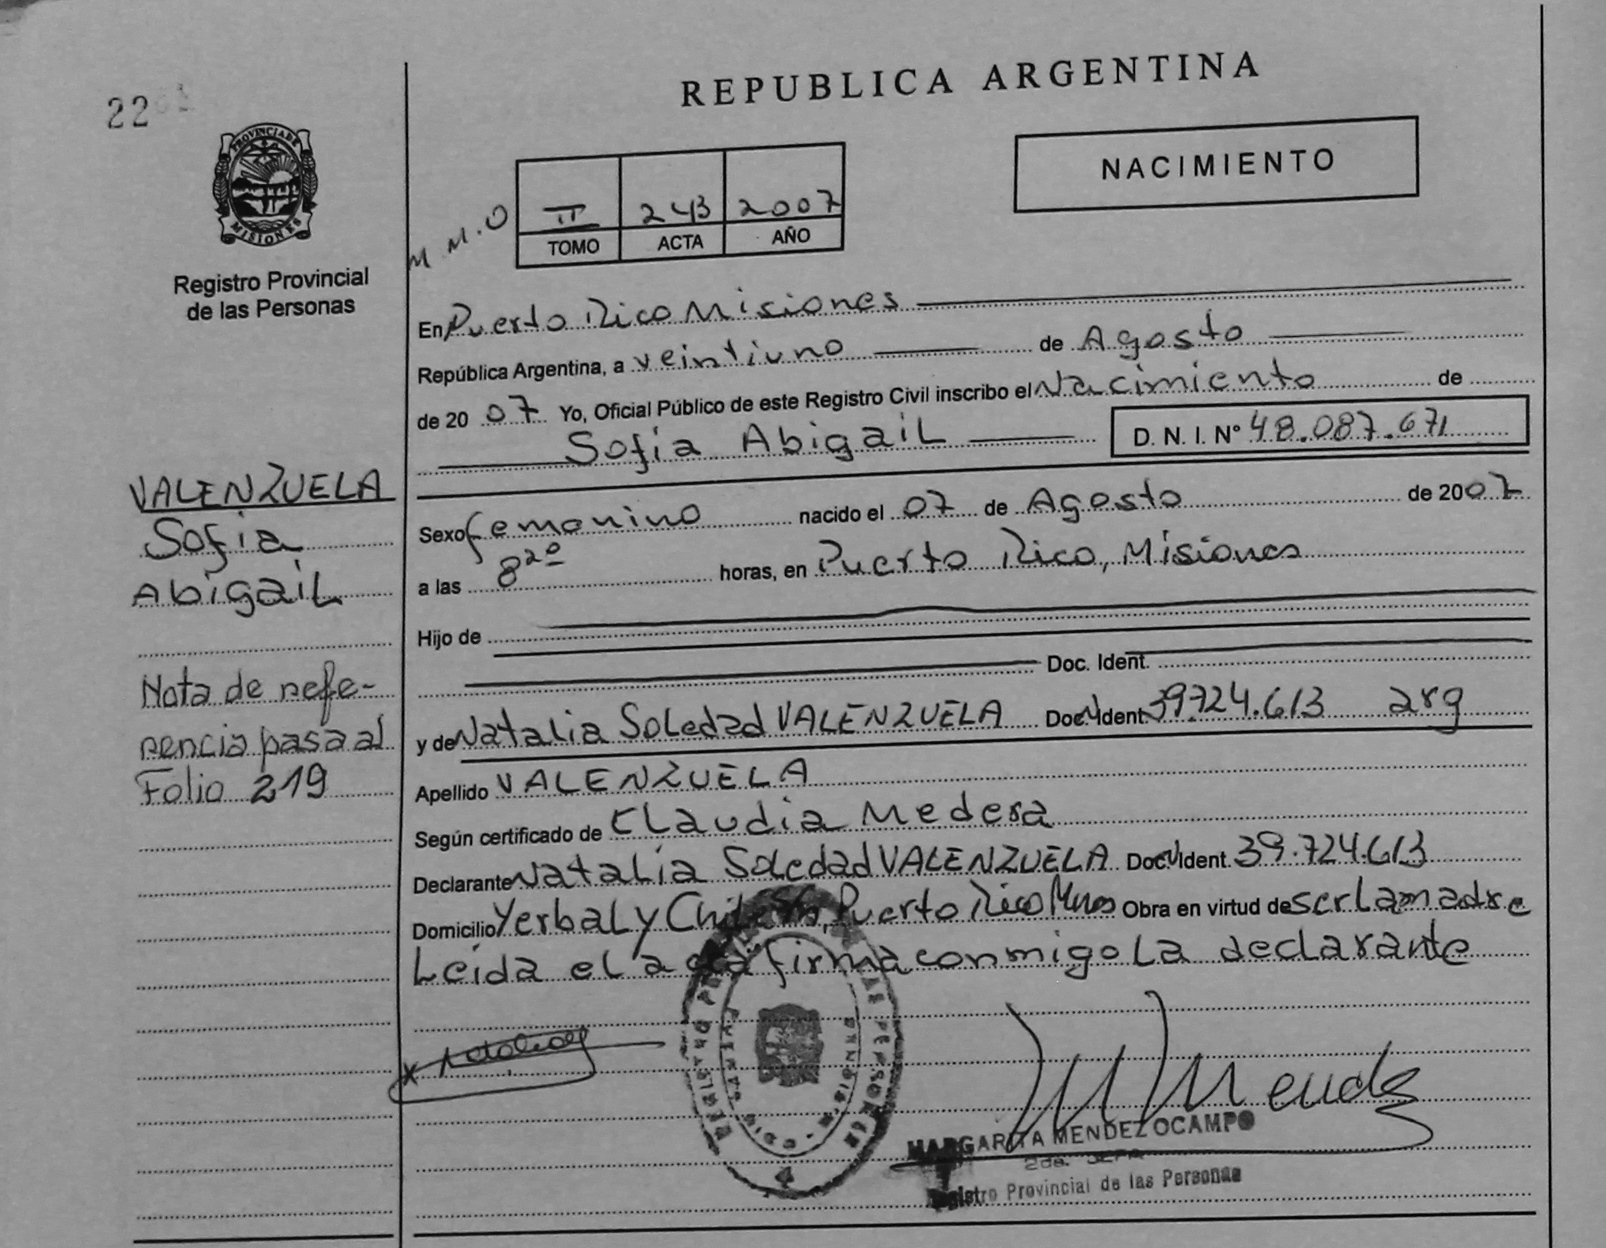 22
REPUBLICA ARGENTINA
PROVINCIA DE
MISIONES
Registro Provincial
de las Personas
M.M.O
II 243 2007
TOMO ACTA AÑO
NACIMIENTO
En Puerto Rico Misiones
República Argentina, a veintiuno de Agosto
de 2007 Yo, Oficial Público de este Registro Civil inscribo el Nacimiento de
Sofia Abigail D. N. I. N° 48.087.671
VALENZUELA
Sofia
Abigail
Sexo femenino nacido el 07 de Agosto de 2007
a las 8 20 horas, en Puerto Rico, Misiones
Hijo de
Doc. Ident.
Nota de refe-
rencia pasa al
Folio 219
y de Natalia Soledad VALENZUELA Doc. Ident. 39.724.613 arg
Apellido VALENZUELA
Según certificado de Claudia Medera
Declarante Natalia Soledad VALENZUELA Doc. Ident. 39.724.613
Domicilio Yerbal y Chile Puerto Rico Mnes Obra en virtud de ser la madre
Leída el acta firma conmigo la declarante
MARGARITA MENDEZ OCAMPO
2da. JEFA
Registro Provincial de las Personas